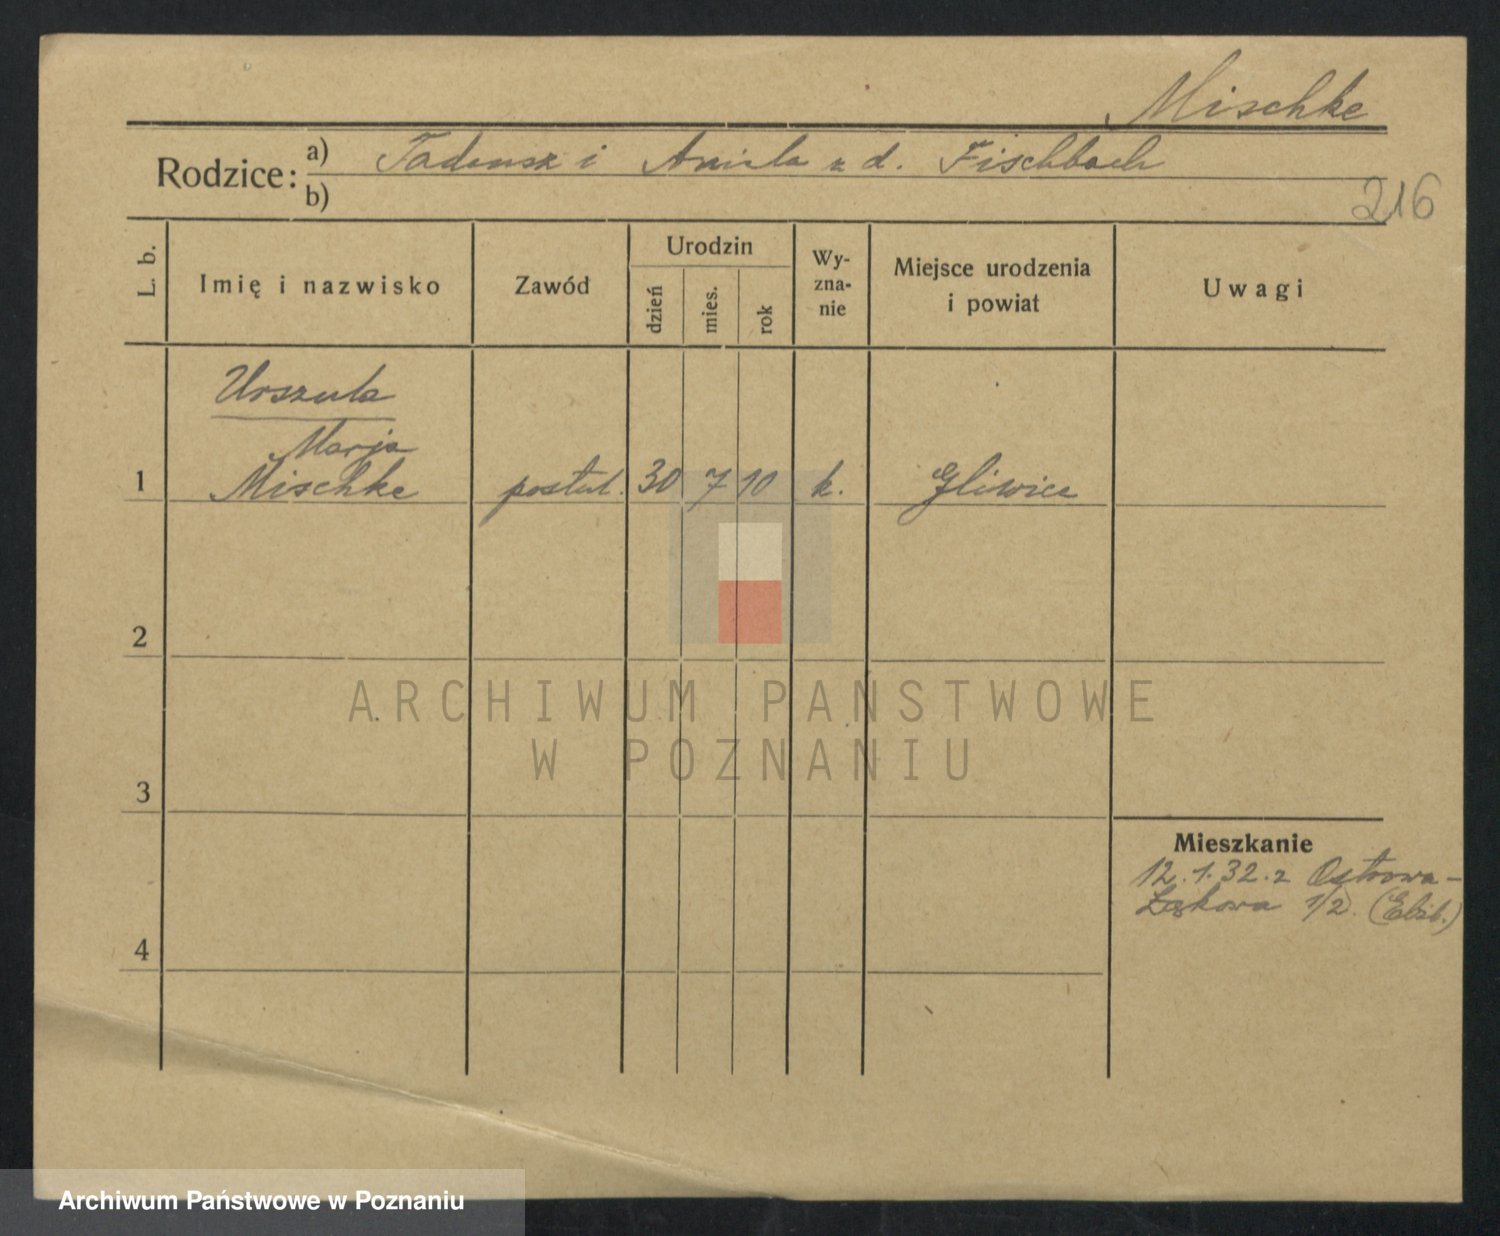 Mischke
Rodzice: a) Tadeusz i Aniela z d. Fischbach
b)
216
L. b.
Imię i nazwisko
Zawód
Urodzin
dzień
mies.
rok
Wy-
zna-
nie
Miejsce urodzenia
i powiat
Uwagi
Urszula
Marja
1 Mischke postul. 30 7 10 k. Gliwice
2
ARCHIWUM PAŃSTWOWE
W POZNANIU
3
Mieszkanie
12.1.32. z Ostrowa-
Łąkowa 1/2. (Elżb.)
4
Archiwum Państwowe w Poznaniu